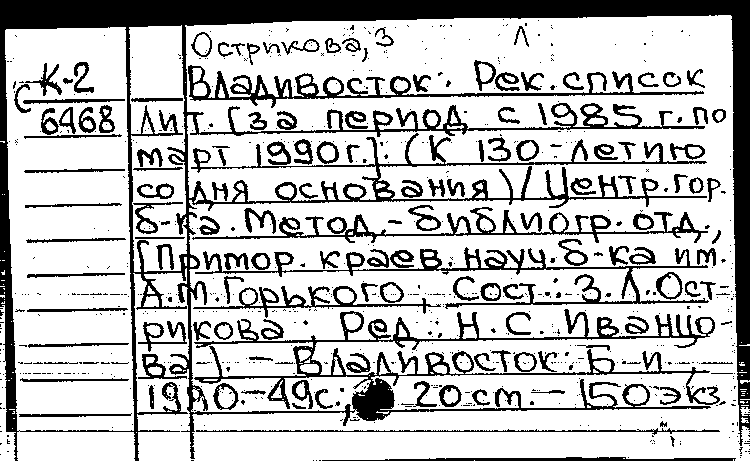 Острикова, З Л
К-2 Владивосток: Рек. список
6468 лит. [за период с 1985 г. по
март 1990 г.]: (К 130-летию
со дня основания) / Центр. гор.
б-ка. Метод.-библиогр. отд.,
[Примор. краев. науч. б-ка им.
А.М. Горького; Сост.: З.Л. Ост-
рикова; Ред.: Н.С. Иванцо-
ва]. — Владивосток: Б. и.,
1990. — 49 с.; 20 см. — 150 экз.